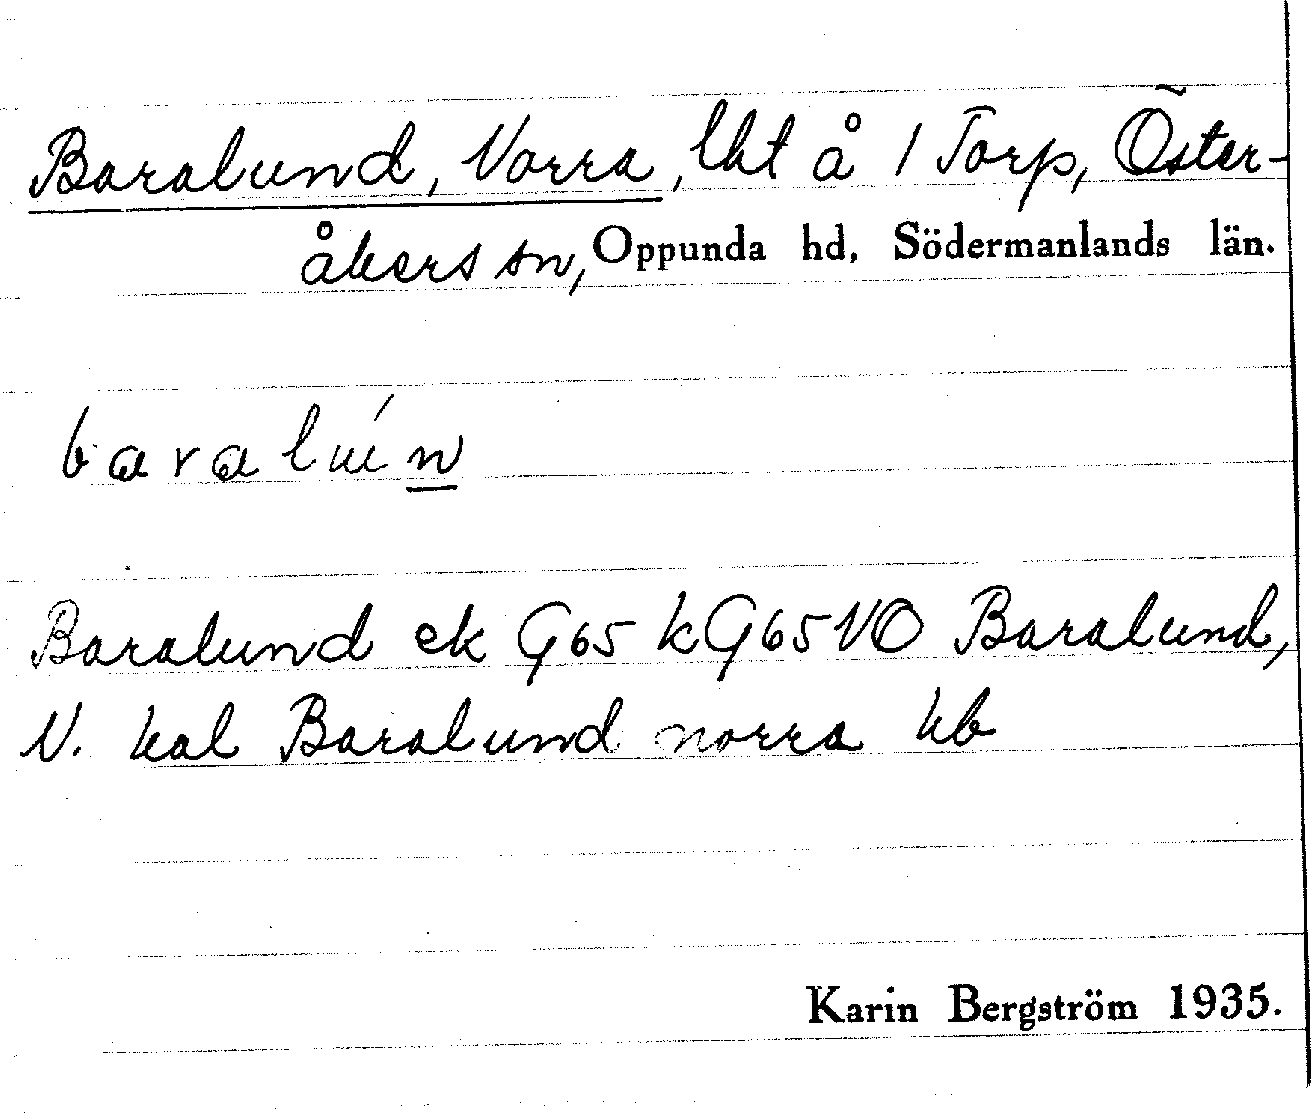 Baralund, Norra, lht å 1 Torp, Öster-
åkers sn, Oppunda hd, Södermanlands län.
baralún
Baralund ek G65 kG65NO Baralund,
N. kal Baralund norra kb
Karin Bergström 1935.